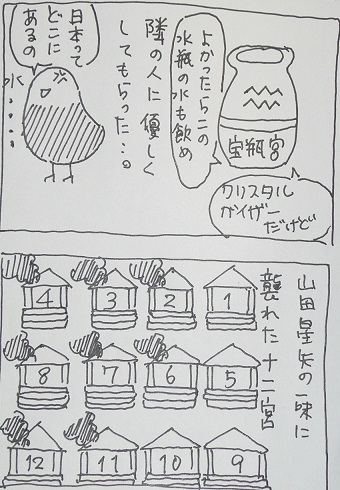 よかったらこの
水瓶の水も飲め
宝瓶宮
クリスタル
ガイザー
だけど
隣の人に優しく
してもらった…。
日本って
どこに
あるの
水…。
山田星矢の一味に
襲れた十二宮
1
2
3
4
5
6
7
8
9
10
11
12